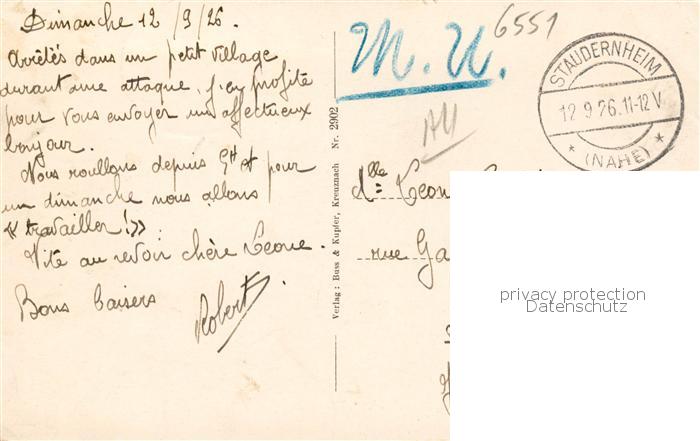 Dimanche 12/9/26.
Arrêtés dans un petit village
durant une attaque, j'en profite
pour vous envoyer un affectueux
bonjour.
Nous roullons depuis 9H et pour
un dimanche nous allons
« travailler !»
Vite au revoir chère Leone.
Bons baisers
Robert
Verlag: Buss & Kupfer, Kreuznach Nr. 2902
M. U.
6551
All
STAUDERNHEIM
12.9.26.11-12V.
* (NAHE) *
Mlle Leon
rue Ga
privacy protection
Datenschutz